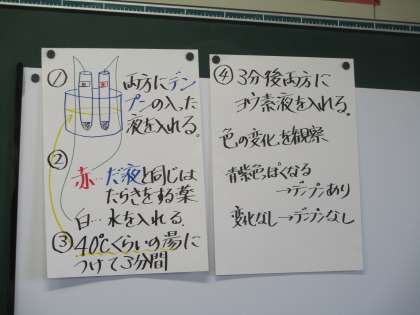 ① 両方にデン
プンの入った
液を入れる。
②
赤… だ液と同じは
たらきをする薬
白… 水を入れる.
③ 40℃くらいの湯に
つけて3分間
④ 3分後両方に
ヨウ素液を入れる.
色の変化を観察
青紫色ぽくなる
→デンプンあり
変化なし→デンプンなし